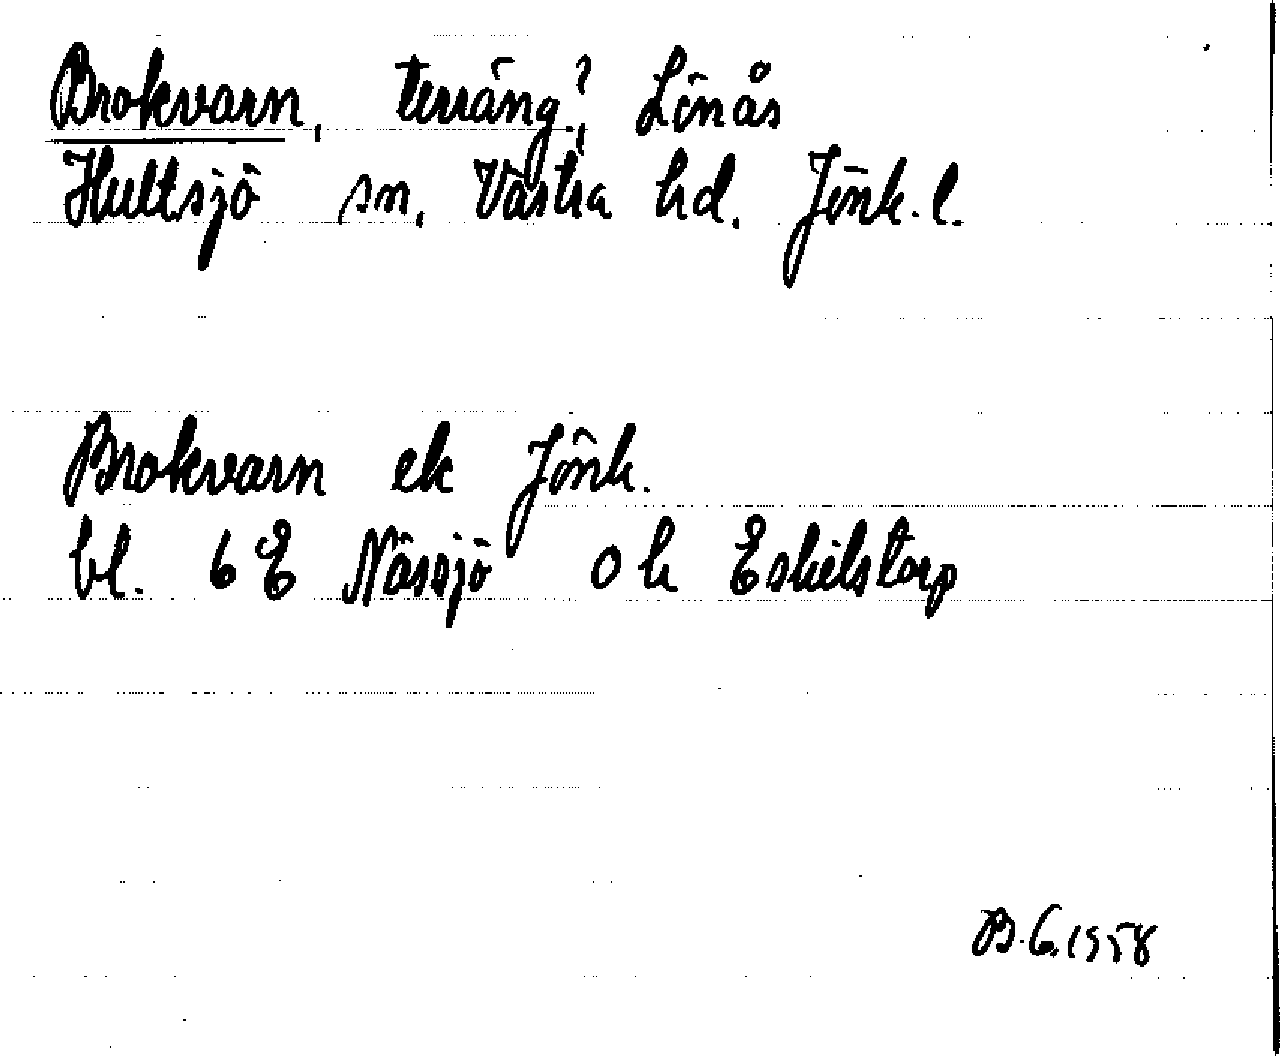 Brokvarn, terräng?, Lönås
Hultsjö sn, Västra hd. Jönk. l.
Brokvarn ek Jönk.
bl. 6E Nässjö o k Eskilstorp
B.G. 1958